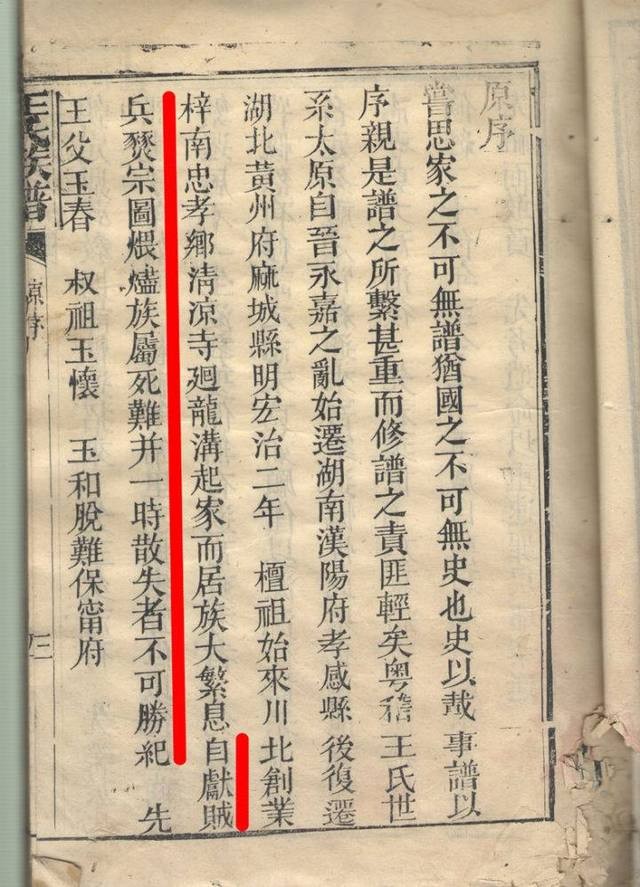 原序
嘗思家之不可無譜猶國之不可無史也史以載事譜以
序親是譜之所繫甚重而修譜之責匪輕矣粵稽王氏世
系太原自晉永嘉之亂始遷湖南漢陽府孝感縣後復遷
湖北黃州府麻城縣明宏治二年 檀祖始來川北創業
梓南忠孝鄉清凉寺廻龍溝起家而居族大繁息自獻賊
兵燹宗圖煨燼族屬死難并一時散失者不可勝紀 先
王父玉春 叔祖玉懷 玉和脫難保甯府
王氏族譜
原序
三